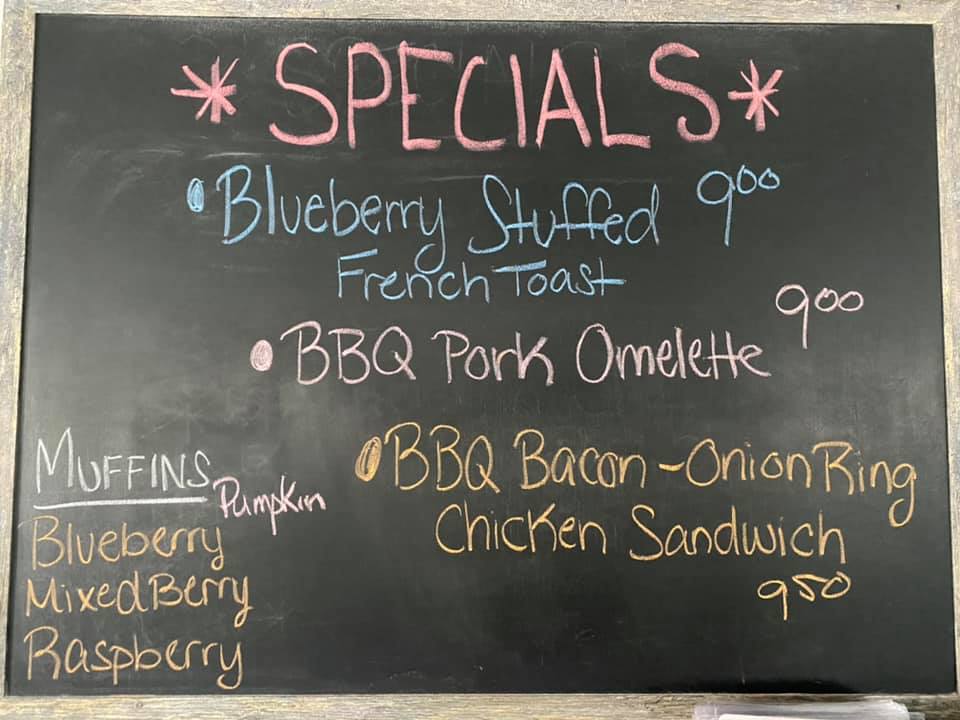 * SPECIALS *
• Blueberry Stuffed 900
French Toast
900
• BBQ Pork Omelette
• BBQ Bacon-Onion Ring
Chicken Sandwich
950
MUFFINS
Pumpkin
Blueberry
Mixed Berry
Raspberry